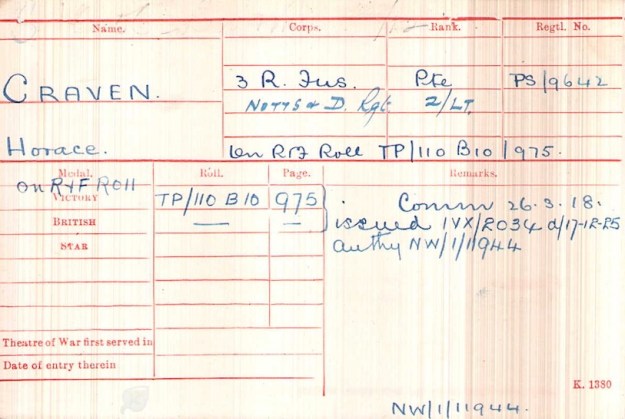 Name. Corps. Rank. Regtl. No.
CRAVEN. 3 R. Fus. Pte PS/9642
Notts & D. Rgt 2/LT.
Horace. On R&F Roll TP/110 B10/975.
Medal. Roll. Page. Remarks.
on R&F Roll
VICTORY TP/110 B10 975 Comm 26.3.18.
BRITISH — — issued IVX/2034 d/17-12-25
STAR authy NW/1/11944
Theatre of War first served in
Date of entry therein
K. 1380
NW/1/11944.